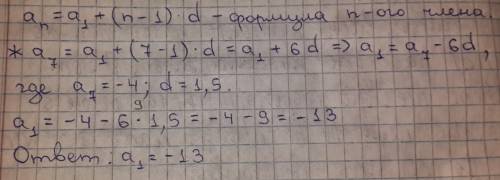 aₙ = a₁ + (n-1)·d - формула n-ого члена
* a₇ = a₁ + (7-1)·d = a₁ + 6d => a₁ = a₇ - 6d,
где a₇ = -4; d = 1,5.
9
a₁ = -4 - 6·1,5 = -4 - 9 = -13
Ответ: a₁ = -13